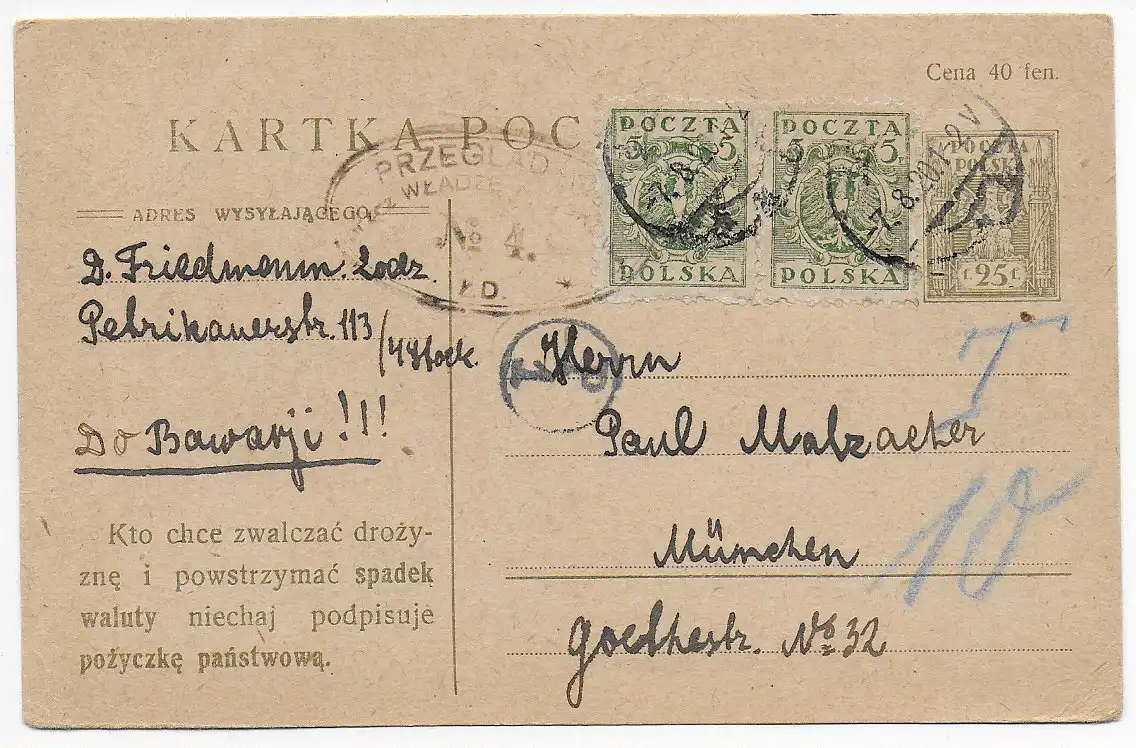 Cena 40 fen.
KARTKA POC
POCZTA
5 5
POLSKA
POCZTA
5 5
POLSKA
POCZTA
POLSKA
f. 25 f.
-7.-8.20
PRZEGLĄD
WŁADZE
№ 4.
ADRES WYSYŁAJĄCEGO
D. Friedmann. Lodz.
Petrikauerstr. 113
/4 Stock.
Do Bawarji!!!
Kto chce zwalczać droży-
znę i powstrzymać spadek
waluty niechaj podpisuje
pożyczkę państwową.
T
Herrn
Paul Malzacher
München
Goethestr. № 32
T
10